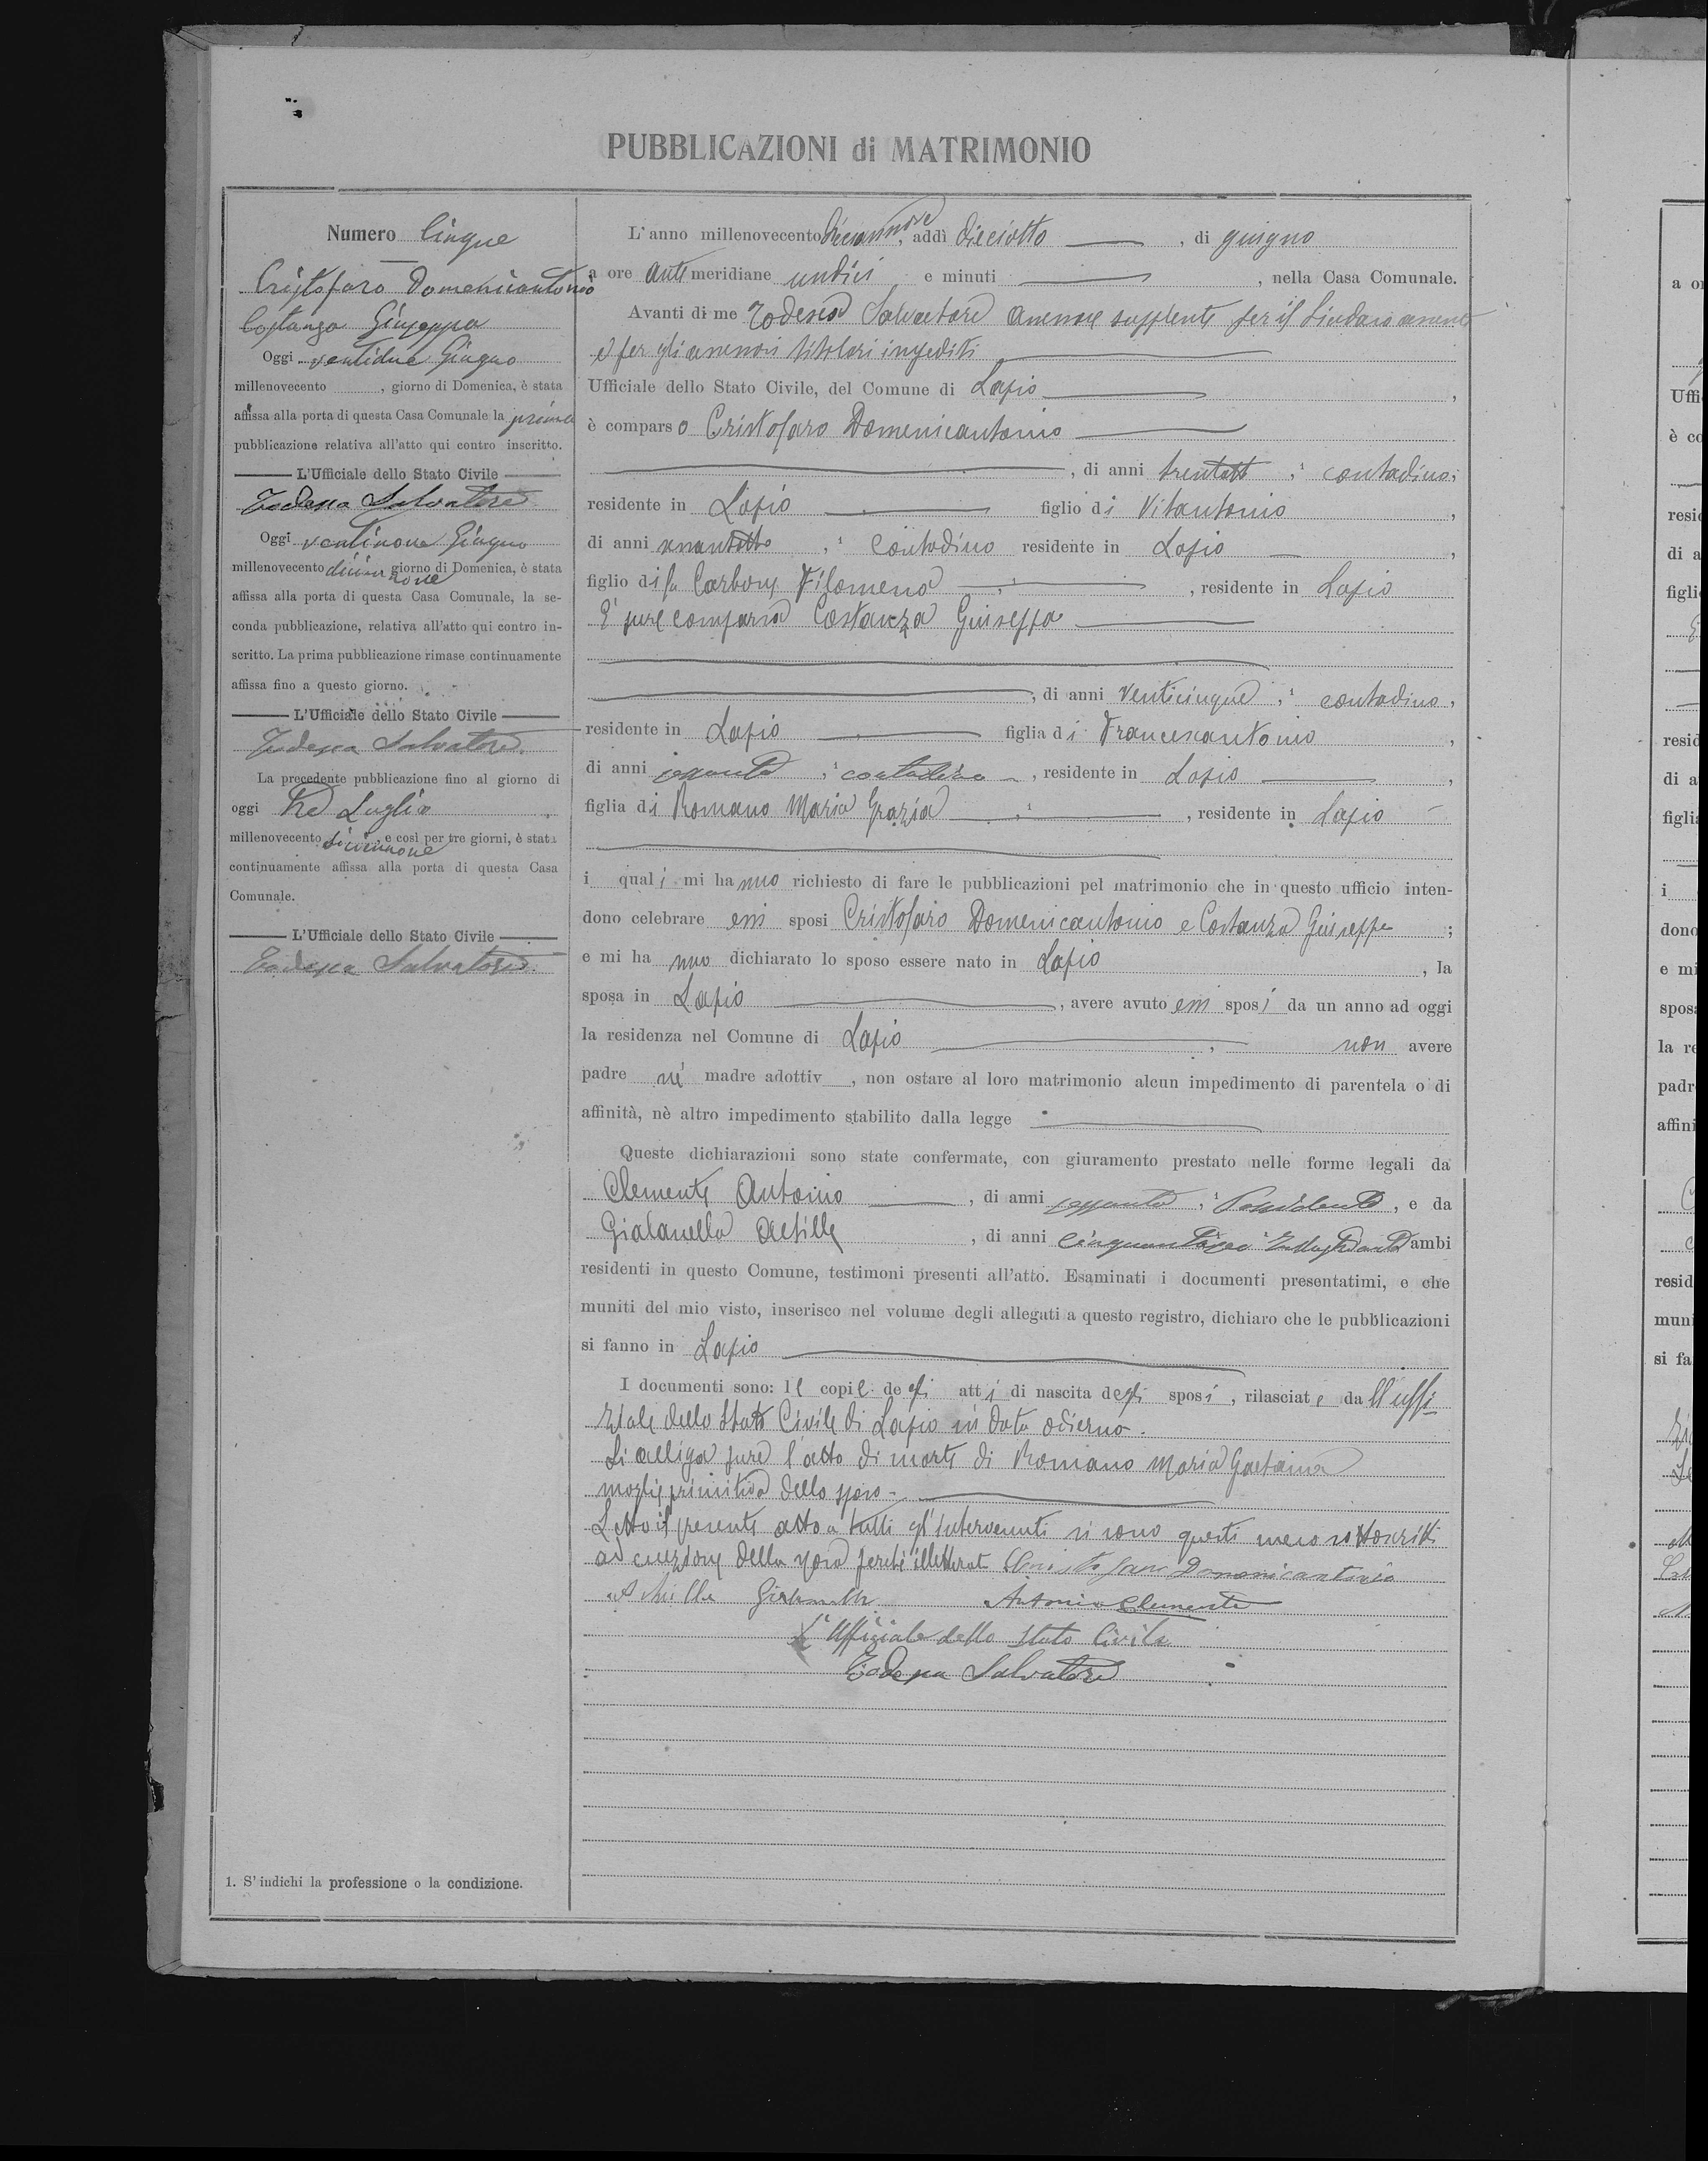 PUBBLICAZIONI di MATRIMONIO
Numero Cinque
Cristofaro Domenicantonio
Costanza Giuseppa
Oggi ventidue Giugno
millenovecento , giorno di Domenica, è stata
affissa alla porta di questa Casa Comunale la prima
pubblicazione relativa all'atto qui contro inscritto.
L'Ufficiale dello Stato Civile
Todesca Salvatore
Oggi ventinove Giugno
millenovecento diciannove giorno di Domenica, è stata
affissa alla porta di questa Casa Comunale, la se-
conda pubblicazione, relativa all'atto qui contro in-
scritto. La prima pubblicazione rimase continuamente
affissa fino a questo giorno.
L'Ufficiale dello Stato Civile
Todesca Salvatore
La precedente pubblicazione fino al giorno di
oggi tre Luglio
millenovecento diciannove e così per tre giorni, è stata
continuamente affissa alla porta di questa Casa
Comunale.
L'Ufficiale dello Stato Civile
Todesca Salvatore
1. S'indichi la professione o la condizione.
L'anno millenovecento diciannove, addì dieciotto , di giugno
a ore anti meridiane undici e minuti , nella Casa Comunale.
Avanti di me Todesca Salvatore assessore supplente per il Sindaco assente
e per gli assessori titolari impediti
Ufficiale dello Stato Civile, del Comune di Lapio ,
è comparso Cristofaro Domenicantonio
, di anni trentotto , contadino,
residente in Lapio figlio di Vitantonio ,
di anni , contadino residente in Lapio ,
figlio di fu Carbone Filomena , residente in Lapio
E' pure comparsa Costanza Giuseppa
, di anni venticinque , contadina,
residente in Lapio figlia di Francescantonio ,
di anni sessanta , contadino , residente in Lapio ,
figlia di Romano Maria Grazia , residente in Lapio
i quali mi hanno richiesto di fare le pubblicazioni pel matrimonio che in questo ufficio inten-
dono celebrare essi sposi Cristofaro Domenicantonio e Costanza Giuseppa ;
e mi ha nno dichiarato lo sposo essere nato in Lapio , la
sposa in Lapio , avere avuto essi sposi da un anno ad oggi
la residenza nel Comune di Lapio , non avere
padre nè madre adottiv , non ostare al loro matrimonio alcun impedimento di parentela o di
affinità, nè altro impedimento stabilito dalla legge
Queste dichiarazioni sono state confermate, con giuramento prestato nelle forme legali da
Clemente Antonio , di anni sessanta , Possidente , e da
Gialanella Achille , di anni ambi
residenti in questo Comune, testimoni presenti all'atto. Esaminati i documenti presentatimi, e che
muniti del mio visto, inserisco nel volume degli allegati a questo registro, dichiaro che le pubblicazioni
si fanno in Lapio
I documenti sono: le copie degli atti di nascita degli sposi , rilasciate dall'uffi-
ziale dello Stato Civile di Lapio in data odierna.
Si alliga pure l'atto di morte di Romano Maria Gaetana
moglie primitiva dello sposo.
Letto il presente atto a tutti gl'intervenuti si sono questi meco sottoscritti
ad eccezione della sposa perchè illetterata Cristofaro Domenicantonio
Achille Gialanella Antonio Clemente
L'Uffiziale dello Stato Civile
Todesca Salvatore